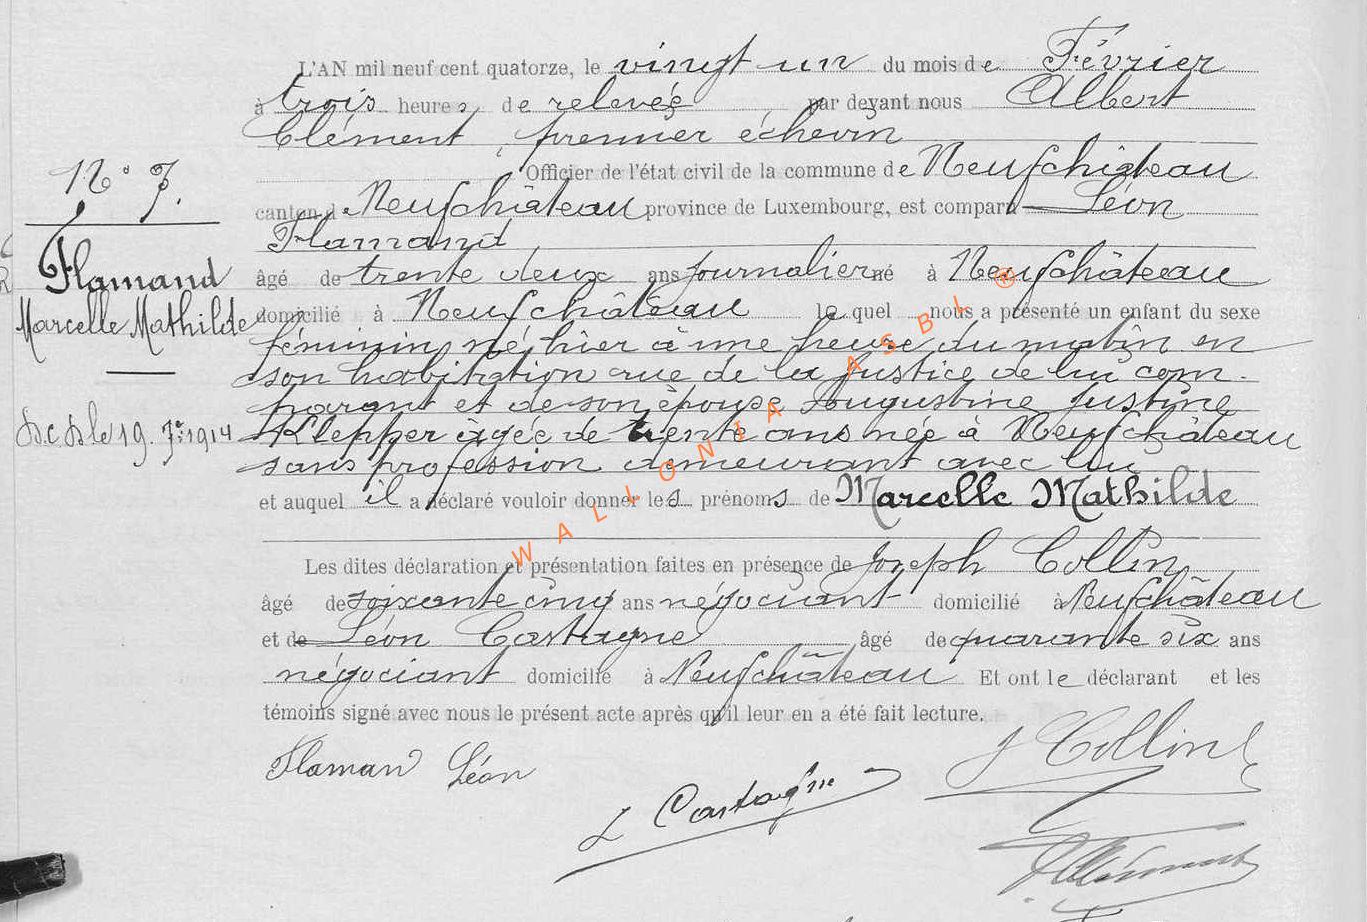 L'AN mil neuf cent quatorze, le vingt un du mois de Février
à trois heures, de relevée par devant nous Albert
Clément, premier échevin
Officier de l'état civil de la commune de Neufchâteau
canton de Neufchâteau province de Luxembourg, est comparu Léon
Flamand
âgé de trente deux ans journalier né à Neufchâteau
domicilié à Neufchâteau lequel nous a présenté un enfant du sexe
féminin, né hier à une heure du matin en
son habitation rue de la Justice de lui com-
parant et de son épouse Augustine Justine
Klepper âgée de trente ans née à Neufchâteau
sans profession demeurant avec lui
et auquel il a déclaré vouloir donner les prénoms de Marcelle Mathilde
Les dites déclaration et présentation faites en présence de Joseph Collin
âgé de soixante cinq ans négociant domicilié à Neufchâteau
et de Léon Castagne âgé de quarante six ans
négociant domicilié à Neufchâteau Et ont le déclarant et les
témoins signé avec nous le présent acte après qu'il leur en a été fait lecture.
Flaman Léon
J Collin
L Castagne
AClément
N° 7.
Flamand
Marcelle Mathilde
le 19. 7re 1914
WALLONIA ASBL ®